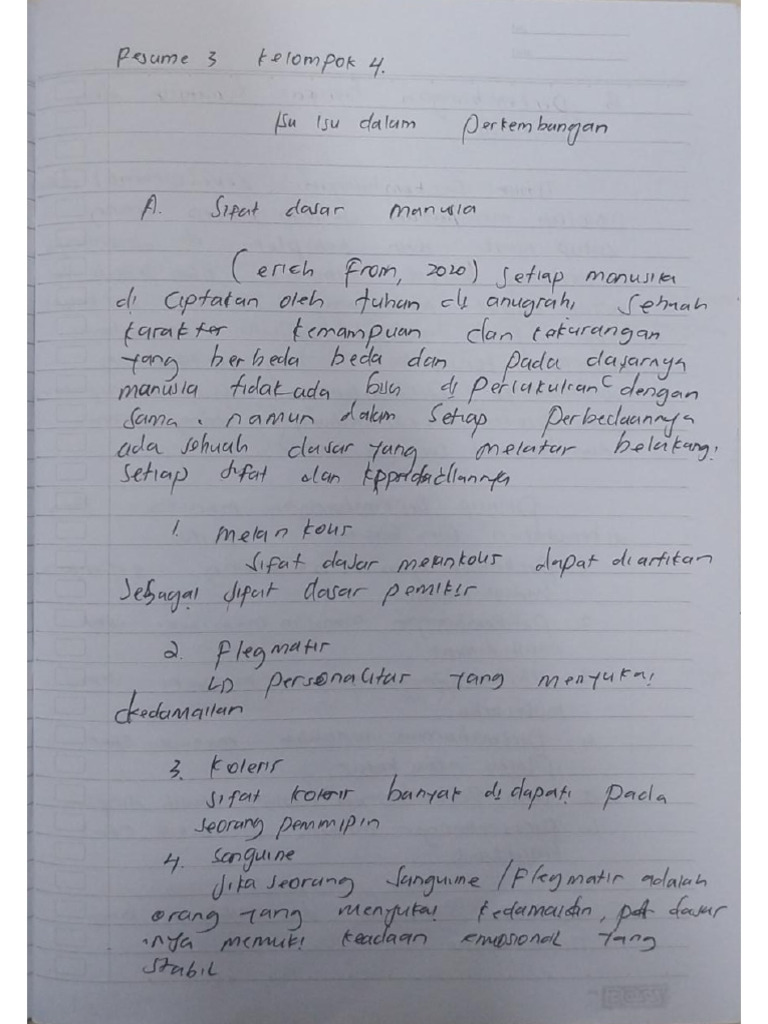 Resume 3 Kelompok 4.
Isu Isu dalam Perkembangan
A. Sifat dasar manusia
(erich From, 2020) setiap manusia
di ciptakan oleh tuhan di anugrahi sebuah
karakter kemampuan dan kekurangan
yang berbeda beda dan pada dasarnya
manusia tidak ada bisa di perlakukan dengan
sama. namun dalam setiap perbedaannya
ada sebuah dasar yang melatar belakangi
setiap sifat dan
1. melankolis
sifat dasar melankolis dapat diartikan
sebagai sifat dasar pemikir
2. Flegmatis
personalitas yang menyukai
kedamaian
3. Koleris
sifat koleris banyak di dapati pada
seorang pemmipin
4. Sanguine
Jika seorang Sanguine / Flegmatis adalah
orang yang menyukai kedamaian, dasar
nya memiliki keadaan emosional yang
stabil